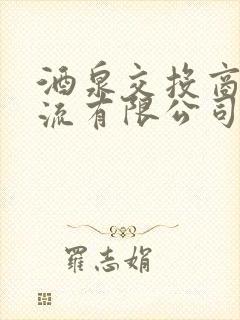 酒泉交投商
流有限公司
羅志娟